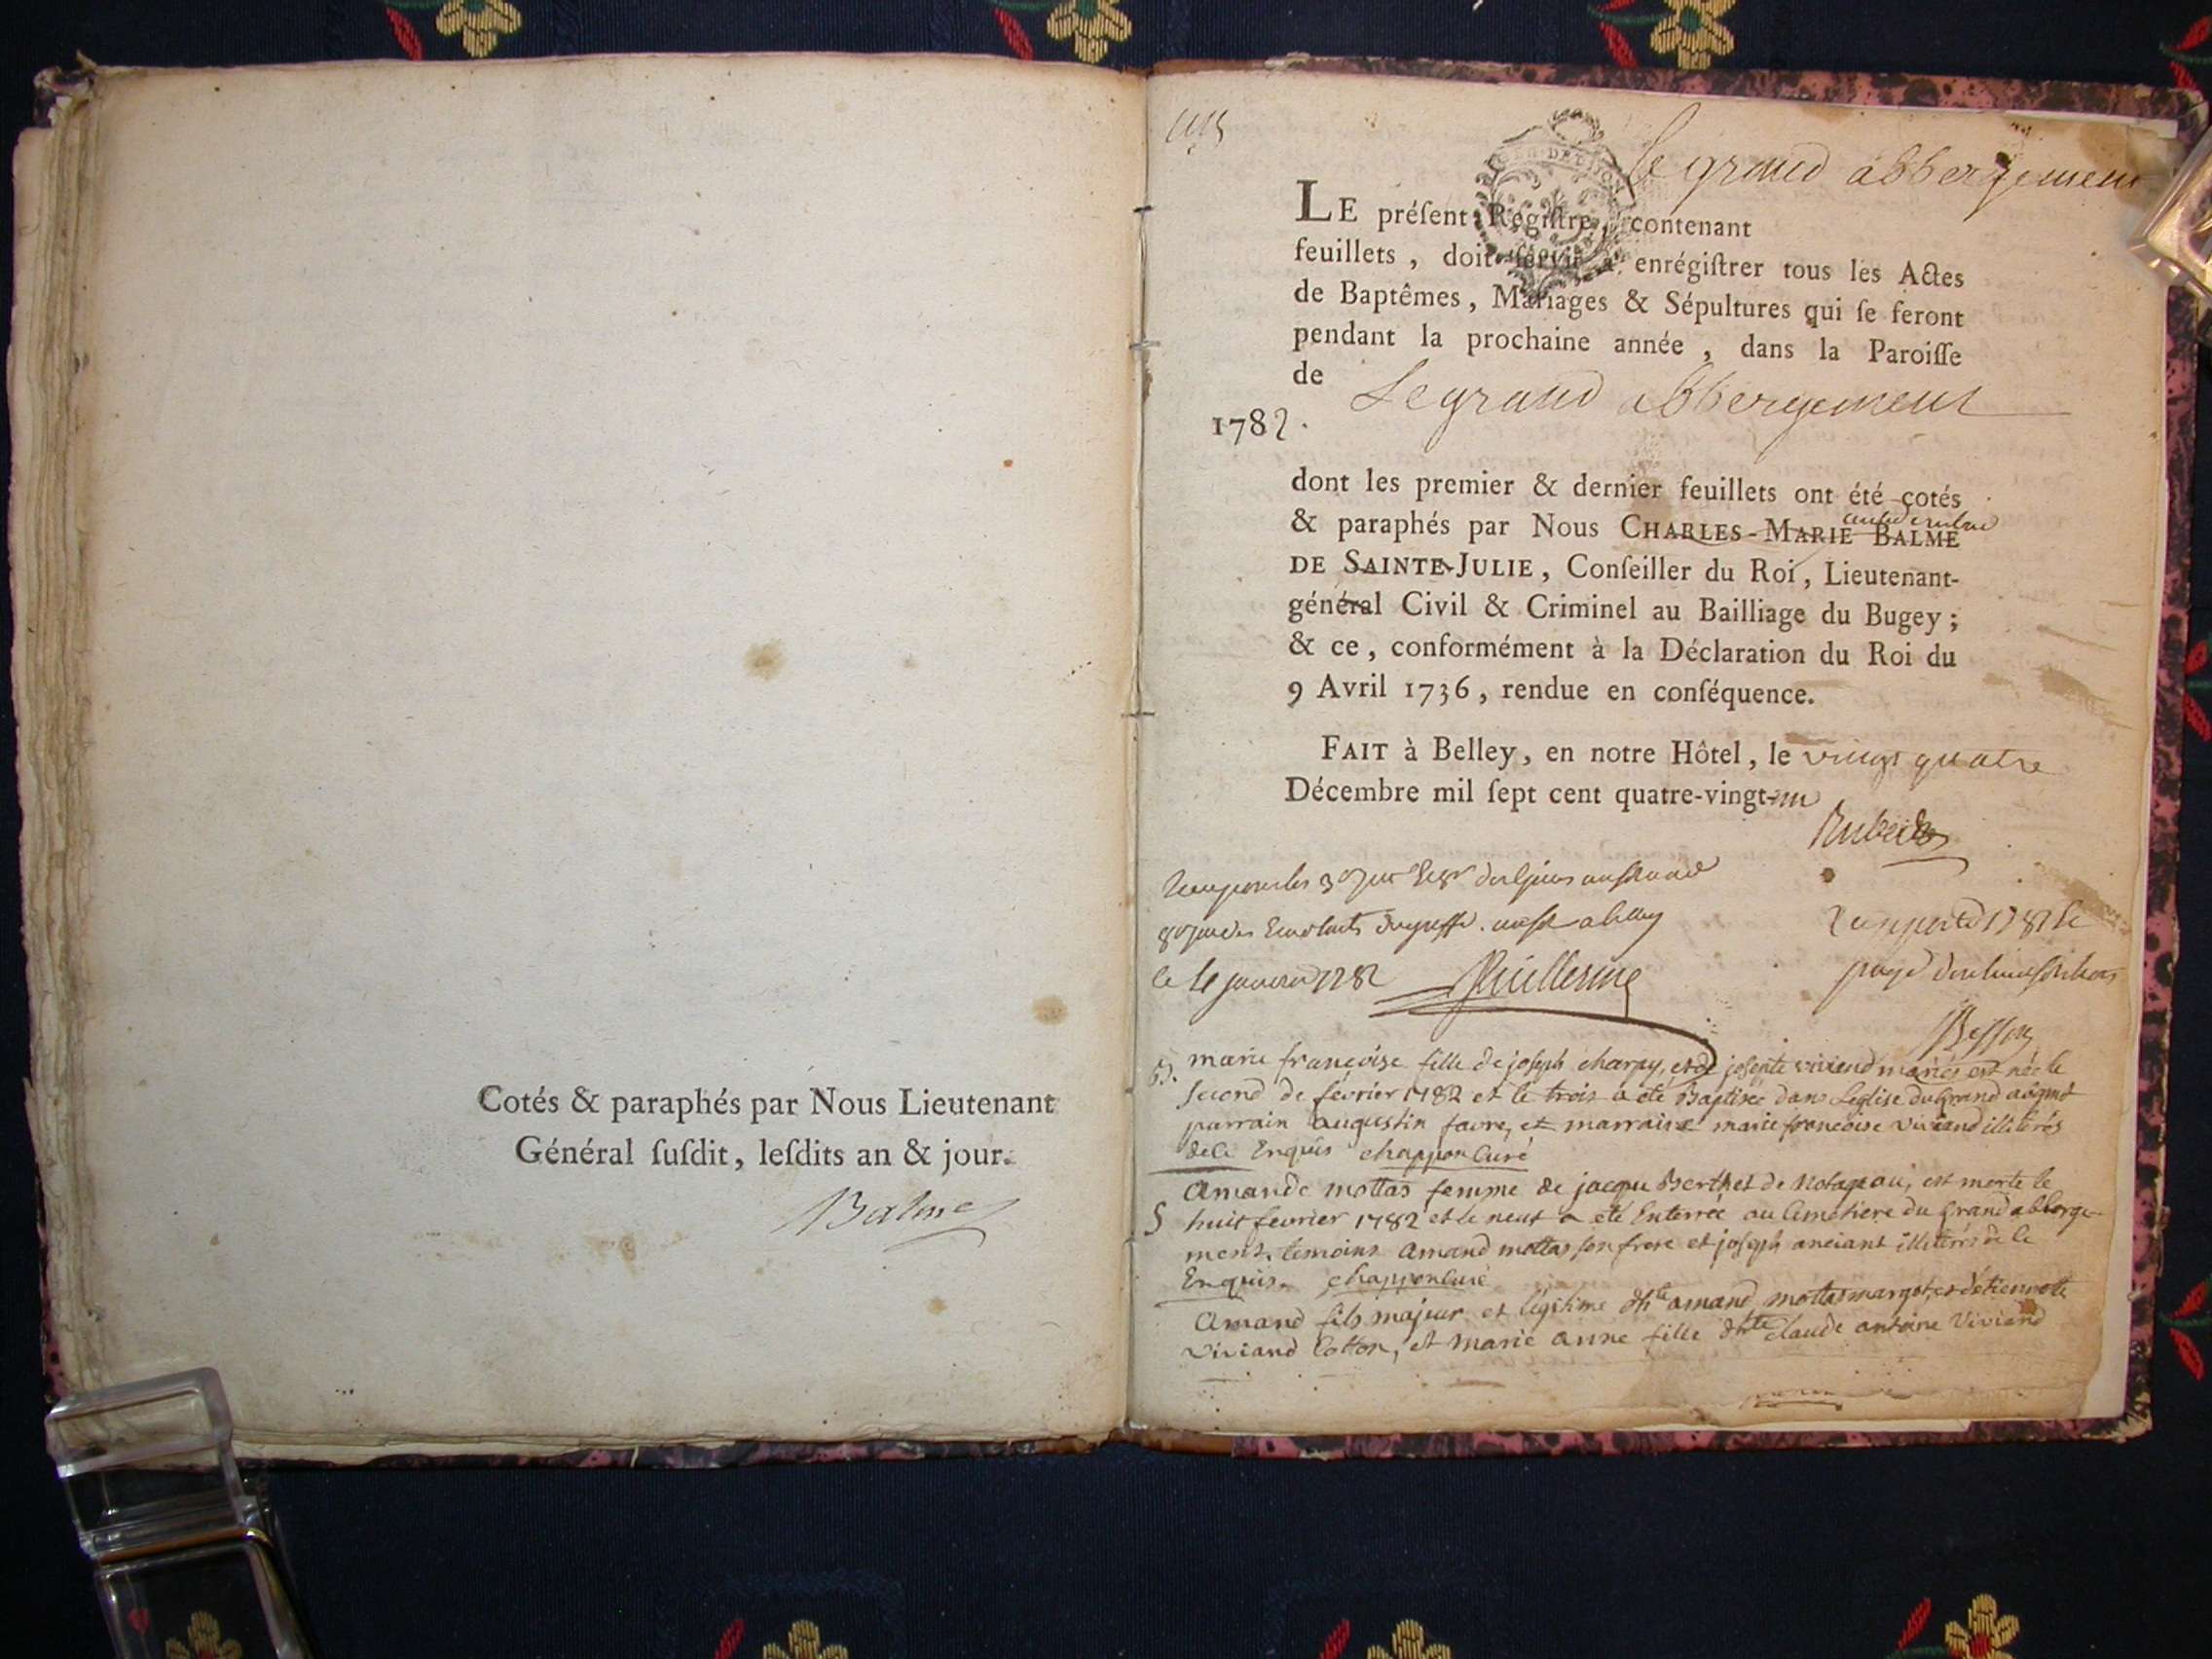 Cotés & paraphés par Nous Lieutenant
Général ſuſdit, leſdits an & jour.
Balme
le grand abbergement
LE préſent Regiſtre, contenant
feuillets, doit ſervir à enrégiſtrer tous les Actes
de Baptêmes, Mariages & Sépultures qui ſe feront
pendant la prochaine année, dans la Paroiſſe
de Le grand abbergement
1782.
dont les premier & dernier feuillets ont été cotés
& paraphés par Nous CHARLES-MARIE BALME
DE SAINTE-JULIE, Conſeiller du Roi, Lieutenant-
général Civil & Criminel au Bailliage du Bugey;
& ce, conformément à la Déclaration du Roi du
9 Avril 1736, rendue en conſéquence.
FAIT à Belley, en notre Hôtel, le vingt quatre
Décembre mil ſept cent quatre-vingt-un
le janvier 1782
marie françoise fille de joseph charpy, et de josepte viviand mariés est née le
second de fevrier 1782 et le trois a été Baptisée dans L'eglise du Grand abgmt
parrain augustin favre, et marraine marie francoise viviand illiterés
de le Enquis chappon Curé
Amande mottas femme de jacque Berthet de est morte le
S huit fevrier 1782 et le neuf a été Enterrée au Cimetiere du Grand abberge-
ment. temoins Amand mottas son frere et joseph anciant illiterés de le
Enquis. chappon Curé
Amand fils majeur et légitime amand mottas margot, et d'étiennette
viviand Cotton, et Marie anne fille claude antoine Viviand